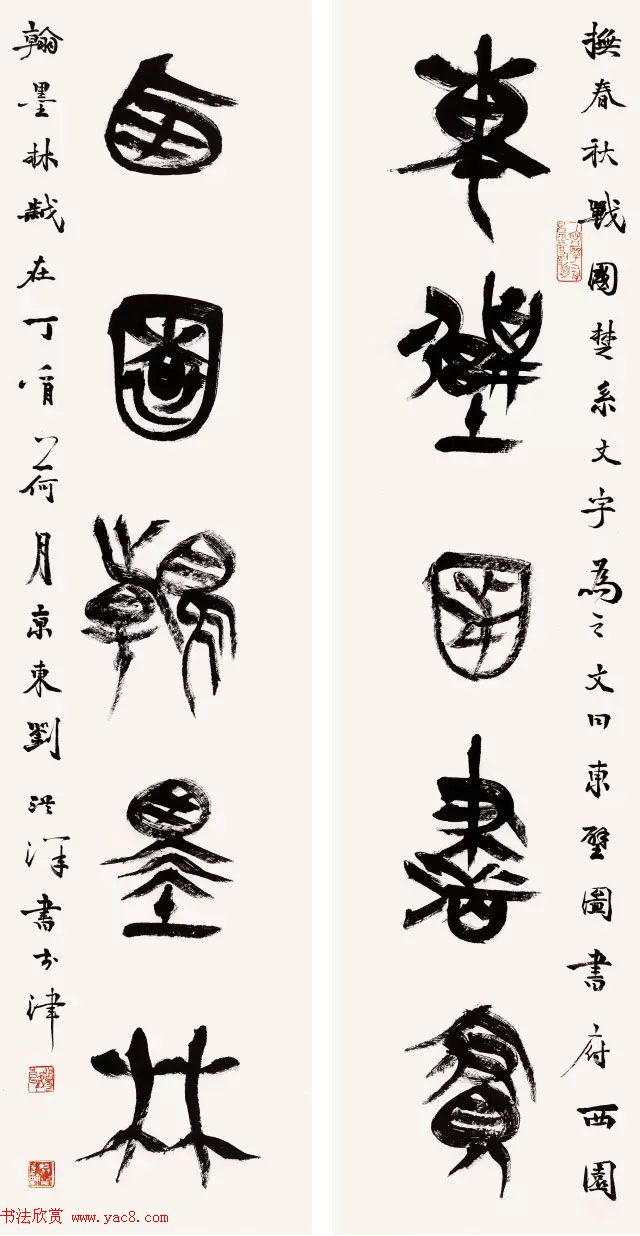 東壁圖書府
西園翰墨林
撫春秋戰國楚系文字為之文曰東壁圖書府西園
翰墨林歲在丁酉之荷月京東劉洪洋書於津
书法欣赏 www.yac8.com